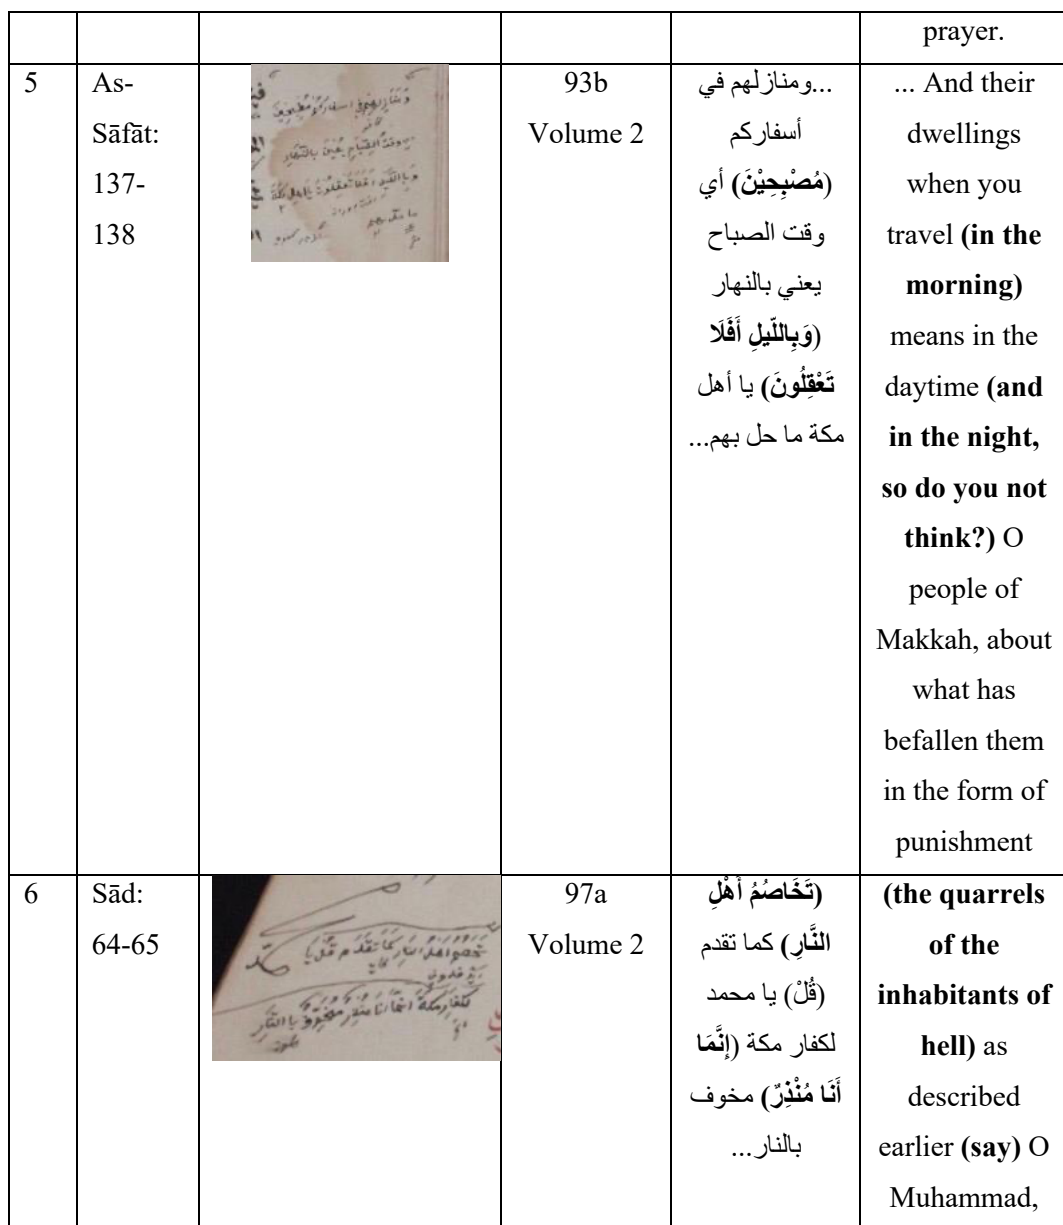 prayer.
5
As-
Sāfāt:
137-
138
93b
Volume 2
...ومنازلهم في
أسفاركم
(مُصْبِحِيْنَ) أي
وقت الصباح
يعني بالنهار
(وَبِاللّيلِ أَفَلَا
تَعْقِلُونَ) يا أهل
مكة ما حل بهم...
... And their
dwellings
when you
travel (in the
morning)
means in the
daytime (and
in the night,
so do you not
think?) O
people of
Makkah, about
what has
befallen them
in the form of
punishment
6
Sād:
64-65
97a
Volume 2
(تَخَاصُمُ أَهْلِ
النَّارِ) كما تقدم
(قُلْ) يا محمد
لكفار مكة (إِنَّمَا
أَنَا مُنْذِرٌ) مخوف
بالنار...
(the quarrels
of the
inhabitants of
hell) as
described
earlier (say) O
Muhammad,